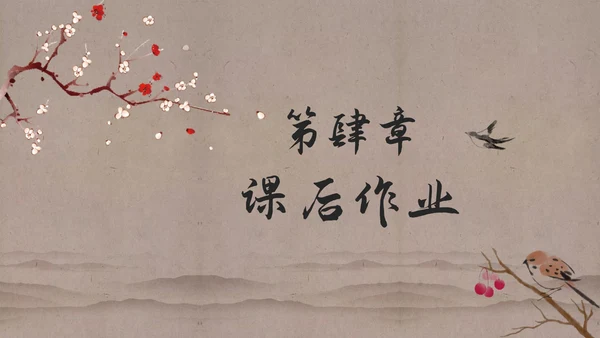 第肆章
课后作业